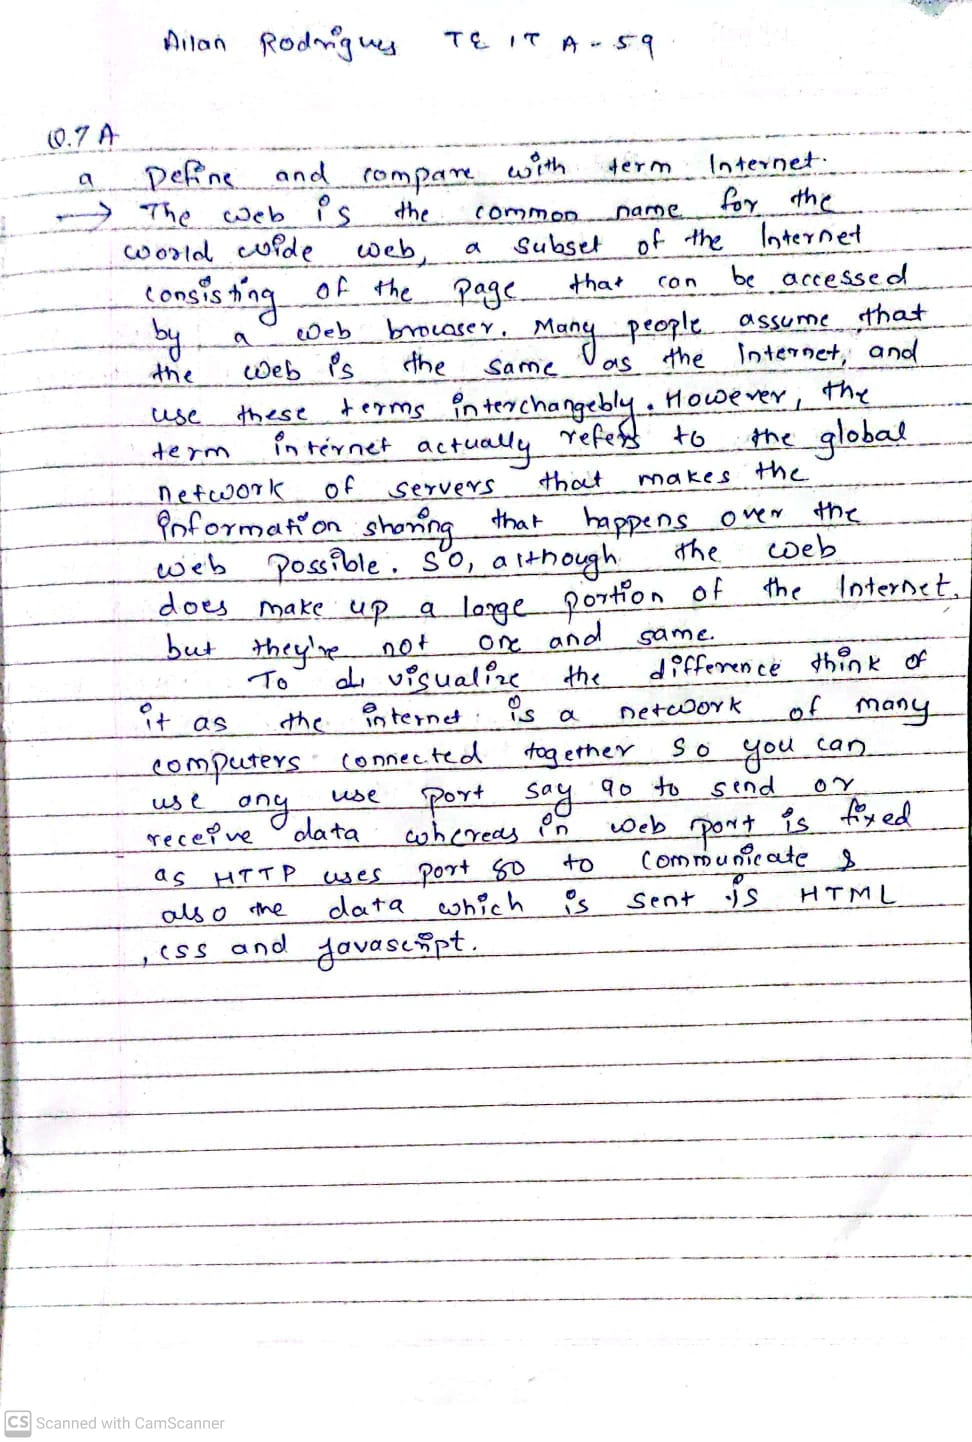 Allan Rodrigues TE IT A - 59
Q.7 A
a Define and compare with term Internet.
→ The web is the common name for the
world wide web, a subset of the Internet
consisting of the page that can be accessed
by a web browser. Many people assume that
the web is the same as the Internet, and
use these terms interchangebly. However, the
term internet actually refers to the global
network of servers that makes the
information sharing that happens over the
web possible. So, although the web
does make up a large portion of the Internet,
but they're not one and same.
To visualize the difference think of
it as the internet is a network of many
computers connected together so you can
use any use port say 90 to send or
receive data whereas in web port is fixed
as HTTP uses port 80 to communicate &
also the data which is sent is HTML
, CSS and javascript.
CS Scanned with CamScanner